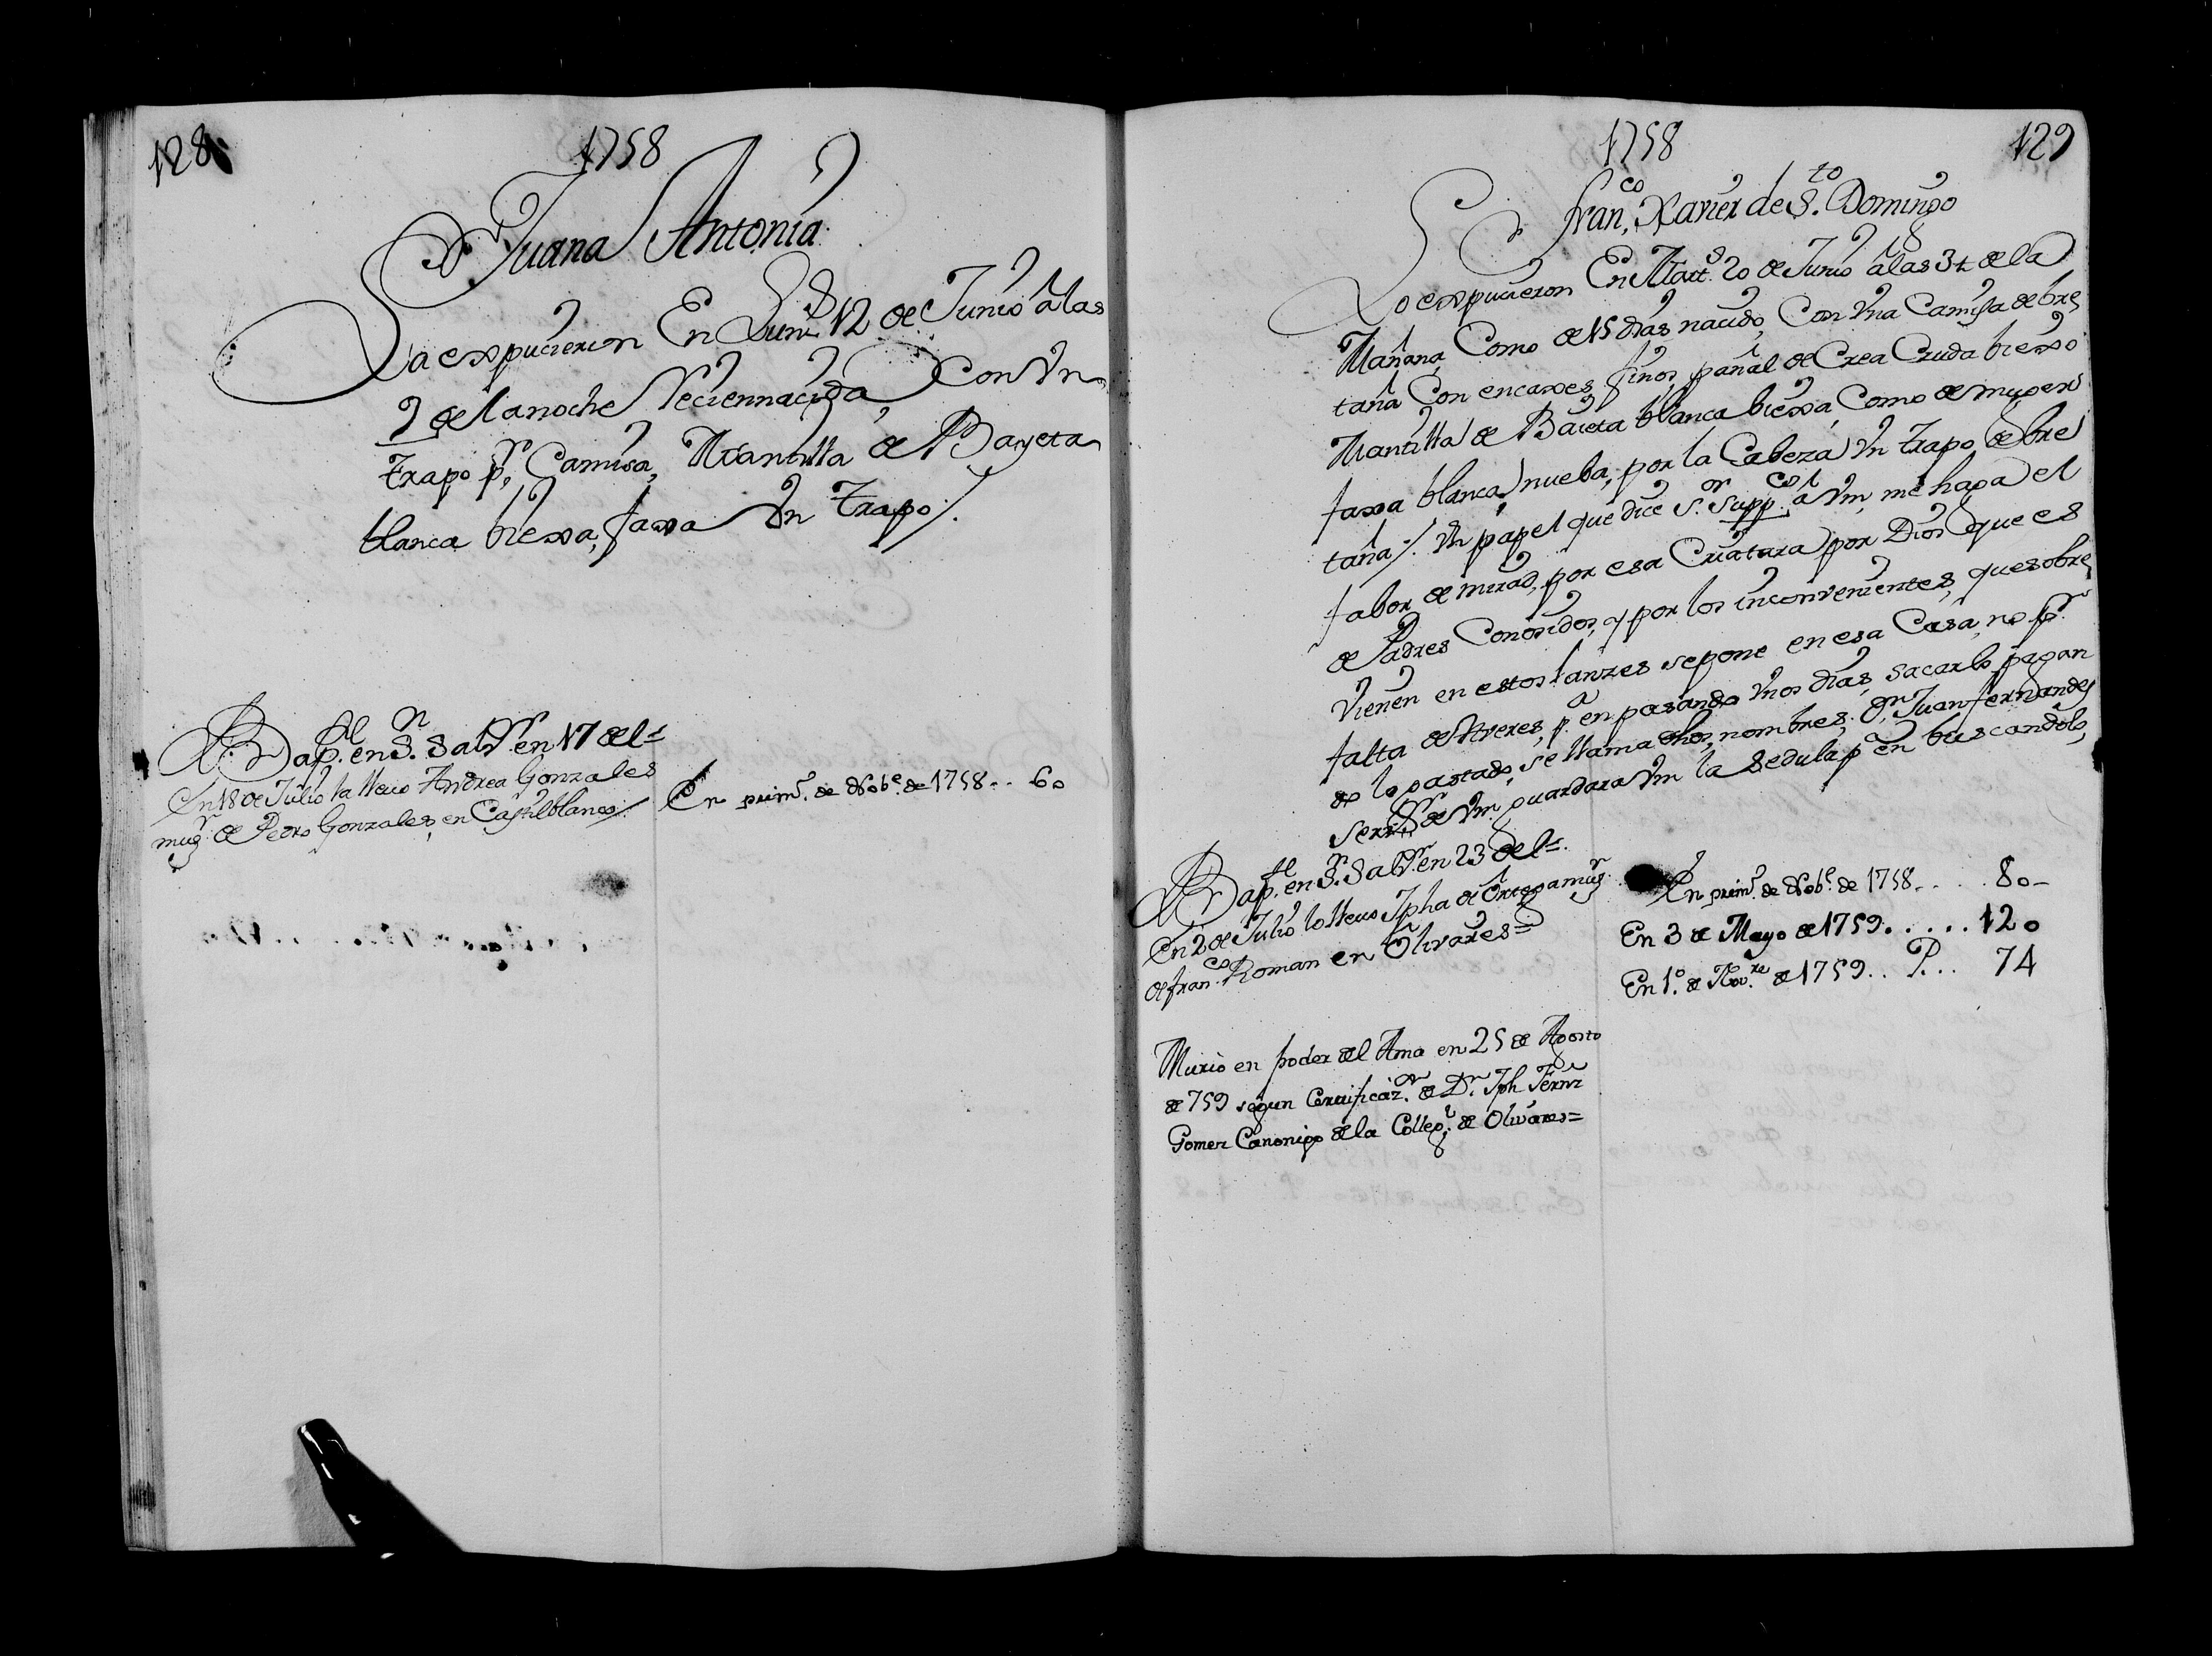 128
1758
Juana Antonia
La expucieron En Lun.s 12 de Junio a las
9 de la noche Reciennacida, Con Vn
trapo p.r Camisa, Mantilla de Bayeta
blanca biexa, faxa Vn trapo /.
Bap.da en S.n Salv.or en 17 del =
En 18 de Julio la llevo Andrea Gonzales
mug.r de Pedro Gonzales, en Castilblanco /.
En prim.o de Nob.e de 1758 .. 60
1758
129
Fran.co Xavier de S.to Domingo
Lo expucieron En Mart.s 20 de Junio a las 3 1/2 de la
Mañana, Como de 15 dias nacido, Con Vna Camisa de bre
taña Con encaxes finos, pañal de Crea Cruda biexo
Mantilla de Baieta blanca biexa, Como de muger
faxa blanca nueba, por la Cabeza Vn trapo de bre
taña /. Vn papel que dice S.or Supp.co a Vm, me haga el
fabor de mirad, por esa Criatura por Dios que es
de Padres Conosidos, y por los inconvenientes, que sobre
vienen en estos lanzes se pone en esa Casa, no p.r
falta de Averes, p.a en pasando Vnos dias, sacarlo pagan
do lo gastado, se llama dhos, nombres, D.n Juan fernandes
Vm guardara Vm la Sedula p.a en buscandolo,
Bap.do en S.n Salv.or en 23 del =
En 2 de Julio lo llevo Jpha de Ortega mug.r
de fran.co Roman en Olivares =
Murio en poder del Ama en 25 de Agosto
de 759 segun Certificaz.on de D.n Jph Fern.z
Gomez Canonigo de la Colleg.l de Olivares =
En prim.o de Nob.e de 1758 .... 80 -
En 3 de Mayo de 1759 ..... 120
En 1.o de Nov.re de 1759 .. P... 74